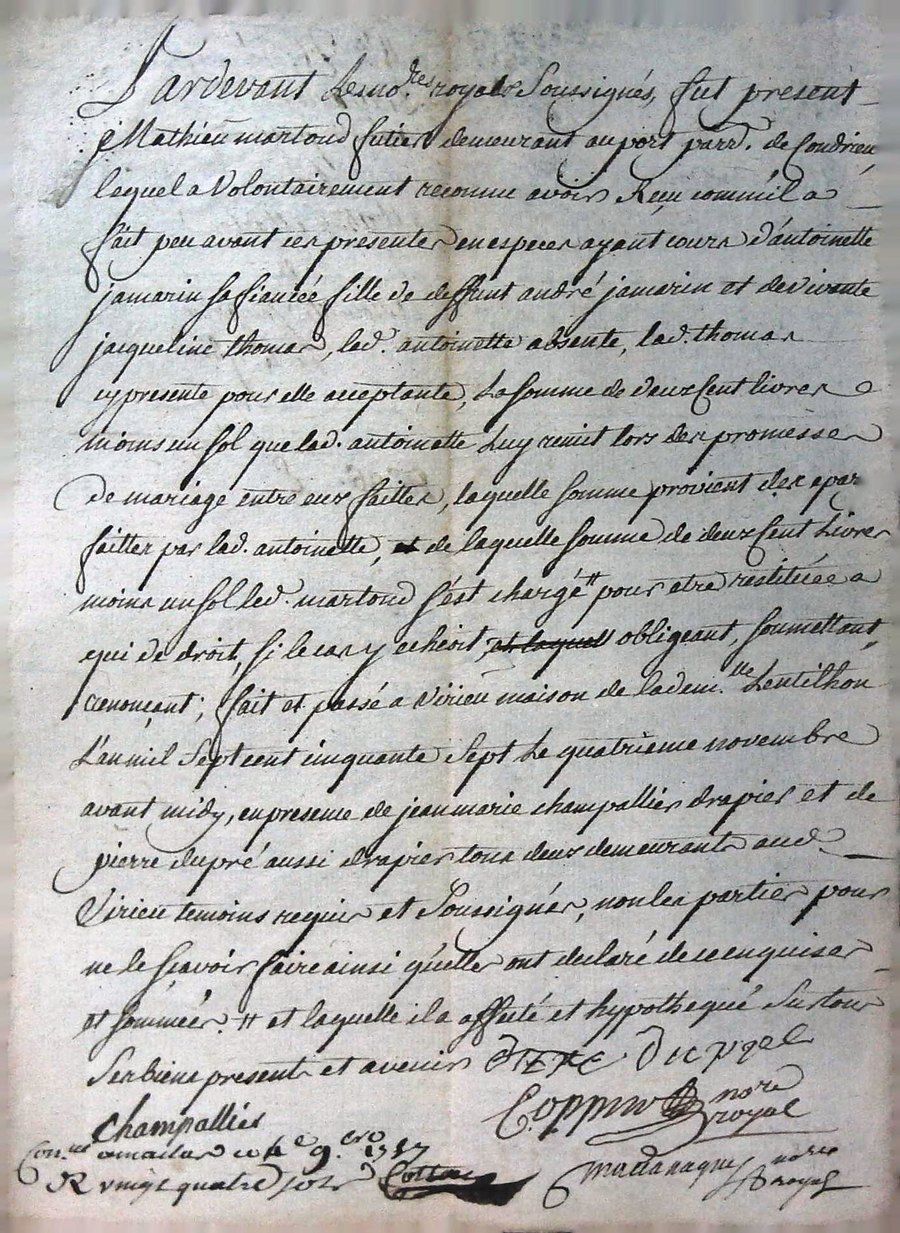 Pardevant les no.res royals soussignés, fut present
Mathieu martoud futier demeurant au port parr. de Condrieu
lequel a volontairement reconnu avoir Reçu comm'il a
fait peu avant ces presentes en especes ayant cours d'antoinette
jamarin sa fiancéé fille de deffunt andré jamarin et de vivante
jacqueline thomas, lad. antoinette absente, lad. thomas
cy presente pour elle acceptante, La somme de deux Cent livres
moins un sol que lad. antoinette Luy remit lors des promesses
de mariage entre eux faittes, laquelle somme provient des epar
faittes par lad. antoinette, et de laquelle somme de deux Cent Livres
moins un sol led. martoud s'est chargé # pour etre restituée a
qui de droit, si le cas y echeoit, et laquell obligeant, soumettant,
renonçant; fait et passé a virieu maison de la dem.lle Lentilhon
L'an mil sept cent cinquante sept Le quatrieme novembre
avant midy, en presence de jean marie champallier drapier et de
pierre dupré aussi drapier tous deux demeurants aud.
Virieu temoins requis et soussignés, non les parties pour
ne le sçavoir faire ainsi qu'elles ont declaré de ce enquises
et sommées. # et laquelle il a affecté et hypothequé sur tous
ses biens presents et avenir
Champallier
royal
nore
royal
Con.lé a maclas ce 4e 9.bre 1757
R vingt quatre sols